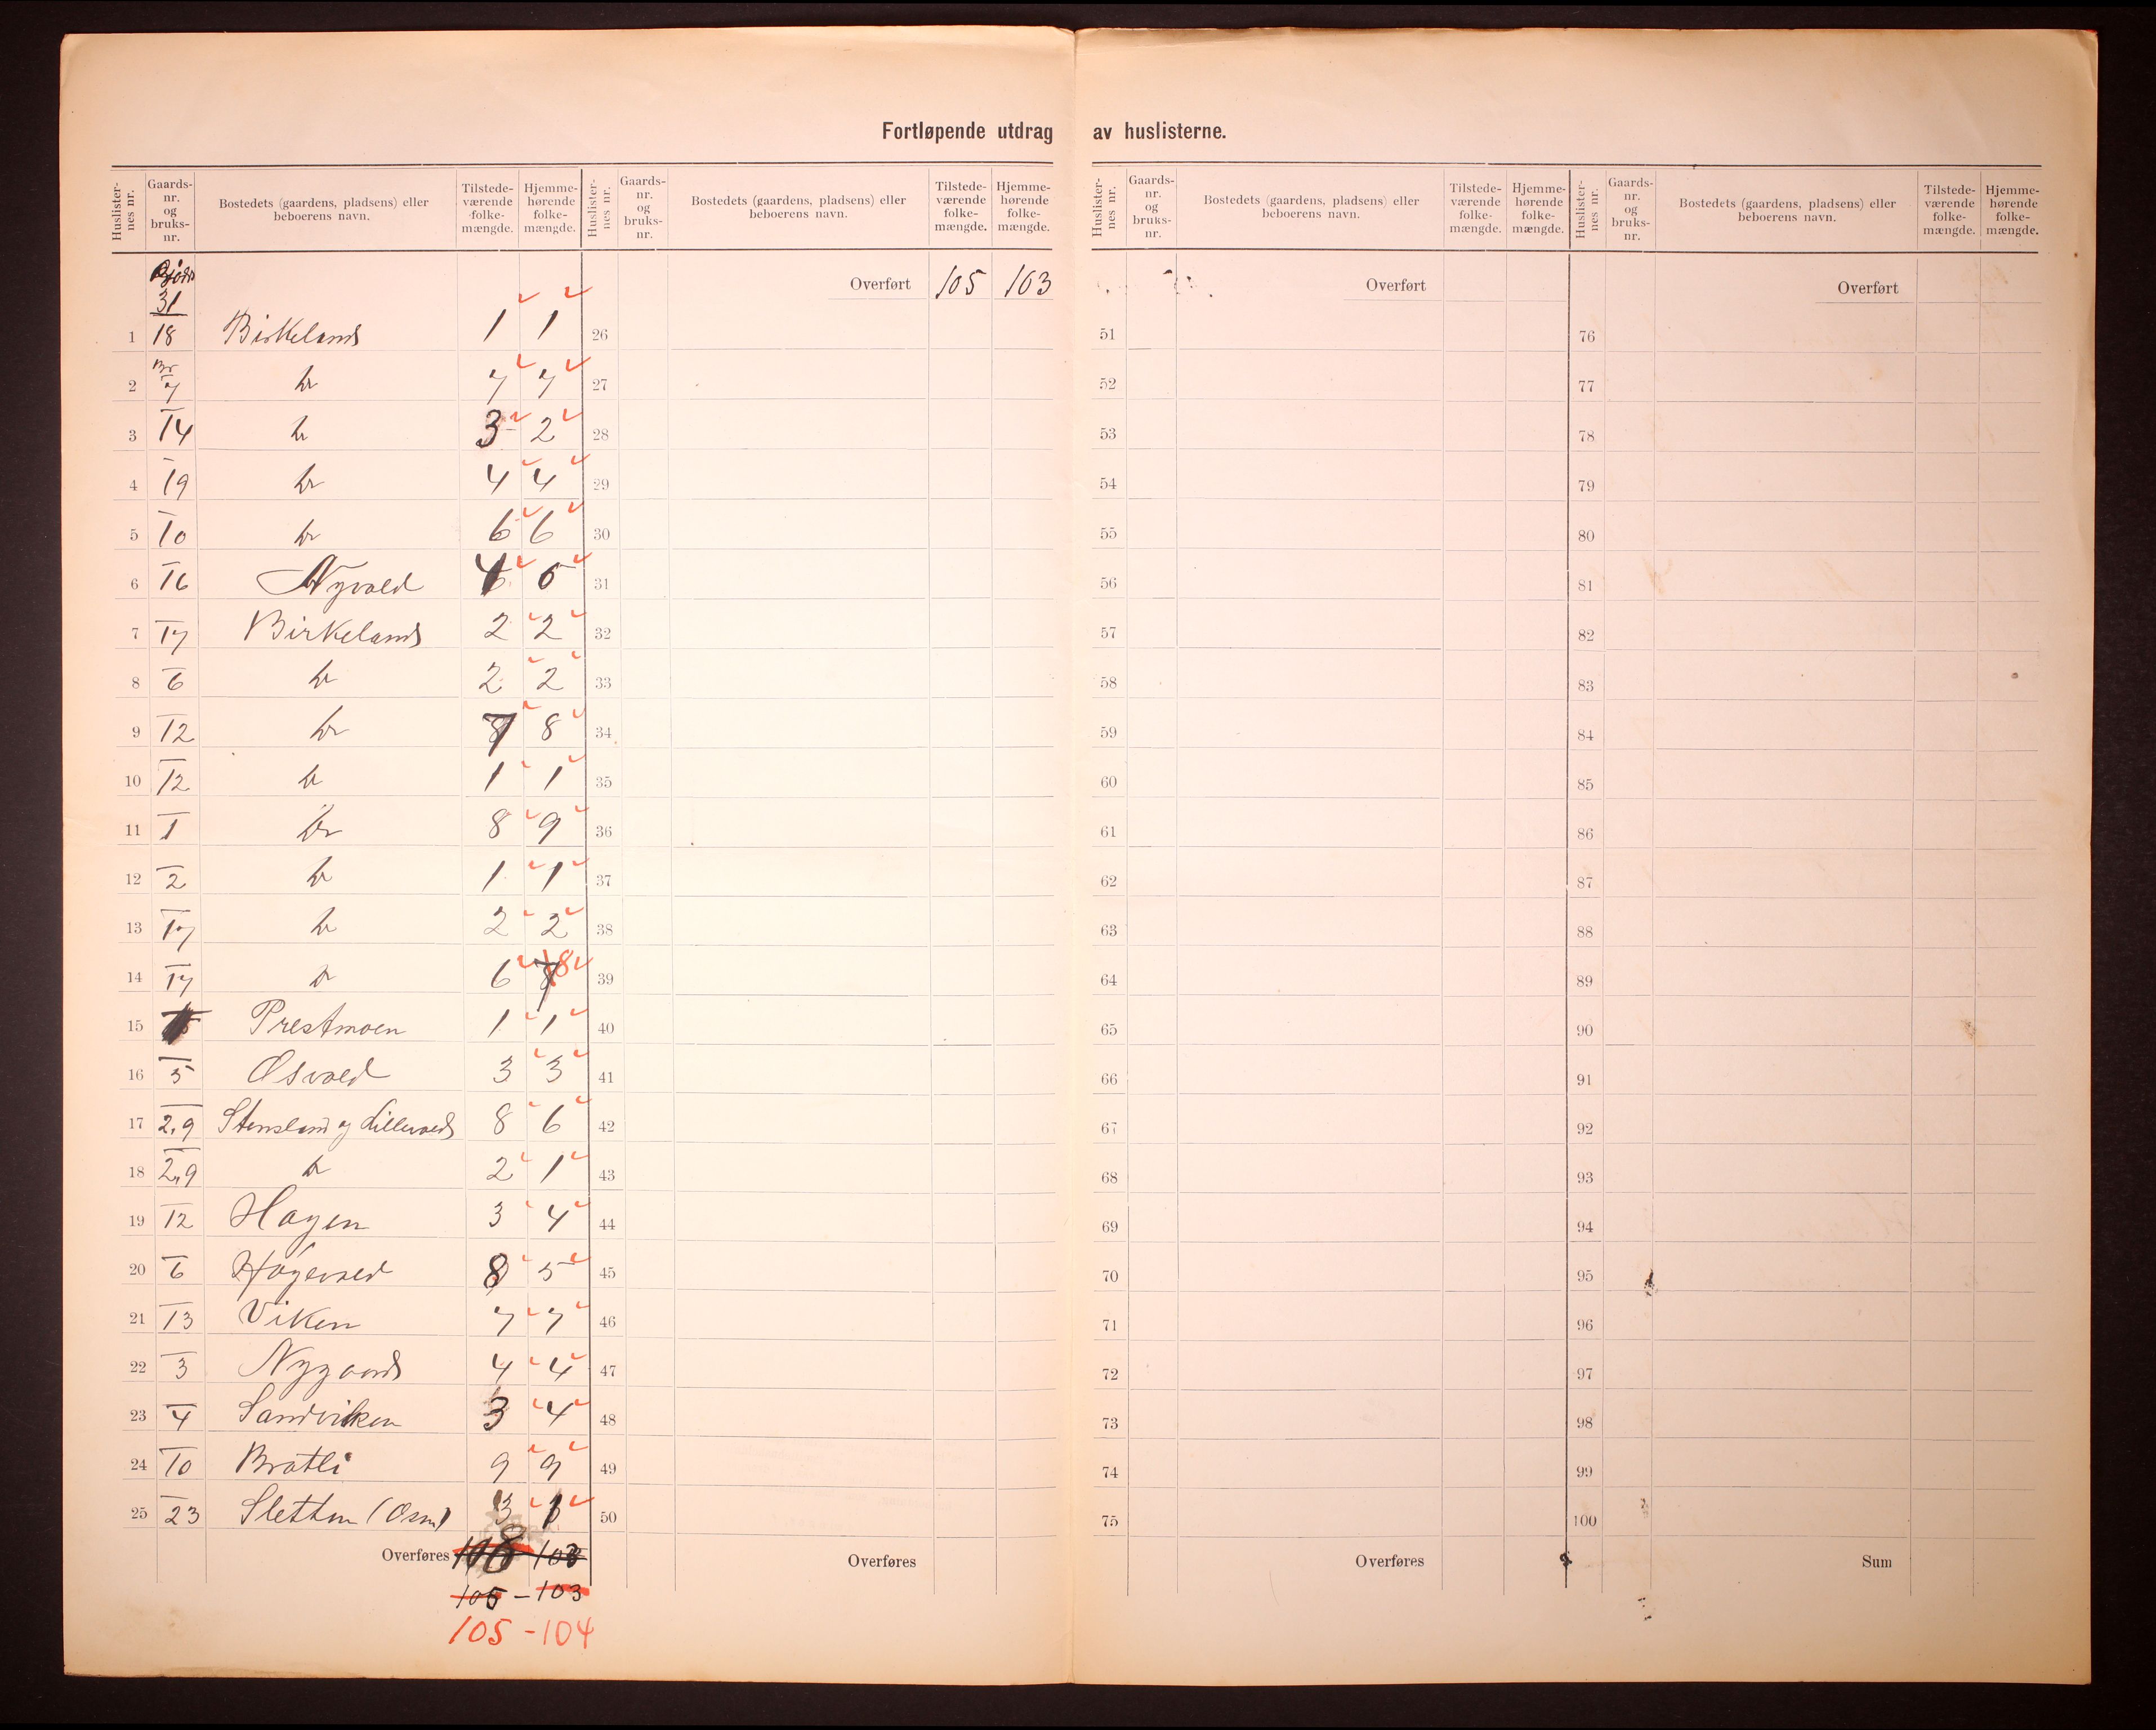 Fortløpende utdrag av huslisterne.
Huslisternes nr. Gaards-nr. og bruks-nr. Bostedets (gaardens, pladsens) eller beboerens navn. Tilstede-værende folke-mængde. Hjemme-hørende folke-mængde.
Huslisternes nr. Gaards-nr. og bruks-nr. Bostedets (gaardens, pladsens) eller beboerens navn. Tilstede-værende folke-mængde. Hjemme-hørende folke-mængde.
Huslisternes nr. Gaards-nr. og bruks-nr. Bostedets (gaardens, pladsens) eller beboerens navn. Tilstede-værende folke-mængde. Hjemme-hørende folke-mængde.
Huslisternes nr. Gaards-nr. og bruks-nr. Bostedets (gaardens, pladsens) eller beboerens navn. Tilstede-værende folke-mængde. Hjemme-hørende folke-mængde.
31
1 18 Birkeland 1 1
2 Br 7 do 7 7
3 14 do 3 2
4 19 do 4 4
5 10 do 6 6
6 16 Nyvold 4 6
7 17 Birkeland 2 2
8 6 do 2 2
9 12 do 7 8
10 12 do 1 1
11 1 do 8 9
12 2 do 1 1
13 17 do 2 2
14 17 do 6 8
15 Prestmoen 1 1
16 5 Osvold 3 3
17 2,9 Stensland og Lillevold 8 6
18 2,9 do 2 1
19 12 Hagen 3 4
20 6 Høgevold 8 5
21 13 Viken 7 7
22 3 Nygaard 4 4
23 4 Sandviken 3 4
24 10 Bratli 9 9
25 23 Sletten (Osm) 3
Overføres 108 103
105 - 103
105 - 104
Overført 105 103
26
27
28
29
30
31
32
33
34
35
36
37
38
39
40
41
42
43
44
45
46
47
48
49
50
Overføres
Overført
51
52
53
54
55
56
57
58
59
60
61
62
63
64
65
66
67
68
69
70
71
72
73
74
75
Overføres
Overført
76
77
78
79
80
81
82
83
84
85
86
87
88
89
90
91
92
93
94
95
96
97
98
99
100
Sum